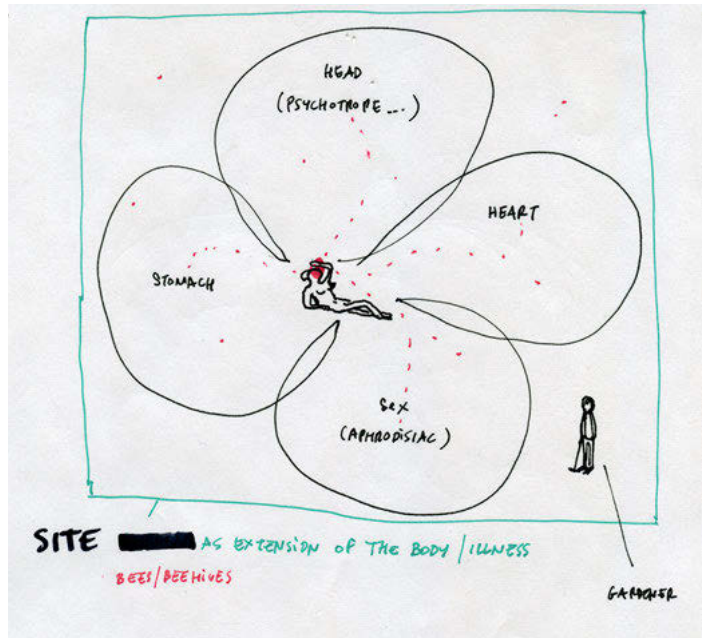 HEAD
(PSYCHOTROPE ...)
HEART
STOMACH
SEX
(APHRODISIAC)
SITE AS EXTENSION OF THE BODY/ILLNESS
BEES/BEEHIVES
GARDENER